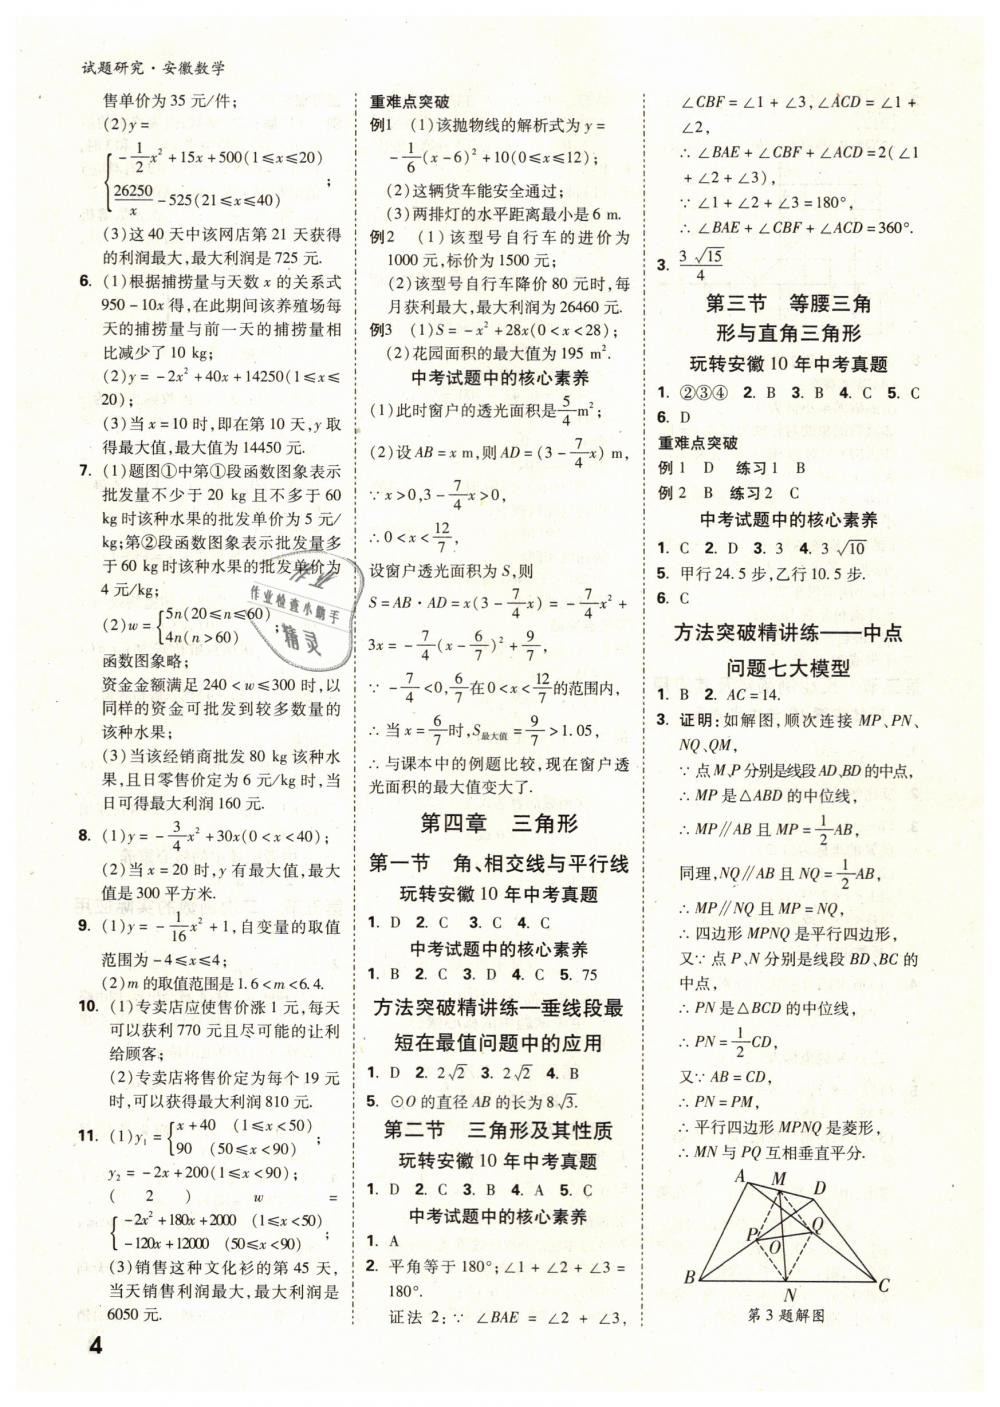 试题研究·安徽数学
售单价为 35 元/件;
(2)y=
{-1/2x²+15x+500(1≤x≤20)
26250/x-525(21≤x≤40);
(3)这 40 天中该网店第 21 天获得
的利润最大,最大利润是 725 元.
6. (1)根据捕捞量与天数 x 的关系式
950-10x 得,在此期间该养殖场每
天的捕捞量与前一天的捕捞量相
比减少了 10 kg;
(2)y=-2x²+40x+14250(1≤x≤
20);
(3)当 x=10 时,即在第 10 天,y 取
得最大值,最大值为 14450 元.
7. (1)题图①中第①段函数图象表示
批发量不少于 20 kg 且不多于 60
kg时该种水果的批发单价为 5 元/
kg;第②段函数图象表示批发量多
于 60 kg 时该种水果的批发单价为
4 元/kg;
(2)w={5n(20≤n≤60)
4n(n>60);
函数图象略;
资金金额满足 240<w≤300 时,以
同样的资金可批发到较多数量的
该种水果;
(3)当该经销商批发 80 kg 该种水
果,且日零售价定为 6 元/kg 时,当
日可得最大利润 160 元.
8. (1)y=-3/4x²+30x(0<x<40);
(2)当 x=20 时,y 有最大值,最大
值是 300 平方米.
9. (1)y=-1/16x²+1,自变量的取值
范围为-4≤x≤4;
(2)m 的取值范围是 1.6<m<6.4.
10. (1)专卖店应使售价涨 1 元,每天
可以获利 770 元且尽可能的让利
给顾客;
(2)专卖店将售价定为每个 19 元
时,可以获得最大利润 810 元.
11. (1)y₁={x+40 (1≤x<50)
90 (50≤x<90);
y₂=-2x+200(1≤x<90);
(2)w=
{-2x²+180x+2000 (1≤x<50)
-120x+12000 (50≤x<90);
(3)销售这种文化衫的第 45 天,
当天销售利润最大,最大利润是
6050 元.
重难点突破
例1 (1)该抛物线的解析式为 y=
-1/6(x-6)²+10(0≤x≤12);
(2)这辆货车能安全通过;
(3)两排灯的水平距离最小是 6 m.
例2 (1)该型号自行车的进价为
1000 元,标价为 1500 元;
(2)该型号自行车降价 80 元时,每
月获利最大,最大利润为 26460 元.
例3 (1)S=-x²+28x(0<x<28);
(2)花园面积的最大值为 195 m².
中考试题中的核心素养
(1)此时窗户的透光面积是5/4m²;
(2)设 AB=x m,则 AD=(3-7/4x) m,
∵x>0,3-7/4x>0,
∴0<x<12/7,
设窗户透光面积为 S,则
S=AB·AD=x(3-7/4x)=-7/4x²+
3x=-7/4(x-6/7)²+9/7,
∵-7/4<0,6/7在0<x<12/7的范围内,
∴当x=6/7时,S最大值=9/7>1.05,
∴与课本中的例题比较,现在窗户透
光面积的最大值变大了.
第四章 三角形
第一节 角、相交线与平行线
玩转安徽 10 年中考真题
1. D 2. C 3. C 4. C
中考试题中的核心素养
1. B 2. C 3. D 4. C 5. 75
方法突破精讲练—垂线段最
短在最值问题中的应用
1. D 2. 2√2 3. 2√2 4. B
5. ⊙O 的直径 AB 的长为 8√3.
第二节 三角形及其性质
玩转安徽 10 年中考真题
1. D 2. C 3. B 4. A 5. C
中考试题中的核心素养
1. A
2. 平角等于 180°;∠1+∠2+∠3=
180°.
证法 2:∵∠BAE=∠2+∠3,
∠CBF=∠1+∠3,∠ACD=∠1+
∠2,
∴∠BAE+∠CBF+∠ACD=2(∠1
+∠2+∠3),
∵∠1+∠2+∠3=180°,
∴∠BAE+∠CBF+∠ACD=360°.
3. 3√15/4
第三节 等腰三角
形与直角三角形
玩转安徽 10 年中考真题
1. ②③④ 2. B 3. B 4. C 5. C
6. D
重难点突破
例 1 D 练习 1 B
例 2 B 练习 2 C
中考试题中的核心素养
1. C 2. D 3. 3 4. 3√10
5. 甲行 24.5 步,乙行 10.5 步.
6. C
方法突破精讲练——中点
问题七大模型
1. B 2. AC=14.
3. 证明:如解图,顺次连接 MP、PN、
NQ、QM,
∵点M、P分别是线段AD、BD的中点,
∴MP 是△ABD 的中位线,
∴MP∥AB 且 MP=1/2AB,
同理,NQ∥AB 且 NQ=1/2AB,
∴MP∥NQ 且 MP=NQ,
∴四边形 MPNQ 是平行四边形,
又∵点 P、N 分别是线段 BD、BC 的
中点,
∴PN 是△BCD 的中位线,
∴PN=1/2CD,
又∵AB=CD,
∴PN=PM,
∴平行四边形 MPNQ 是菱形,
∴MN 与 PQ 互相垂直平分.
A M D
P O Q
B N C
第 3 题解图
作业
作业检查小帮手
精灵
4